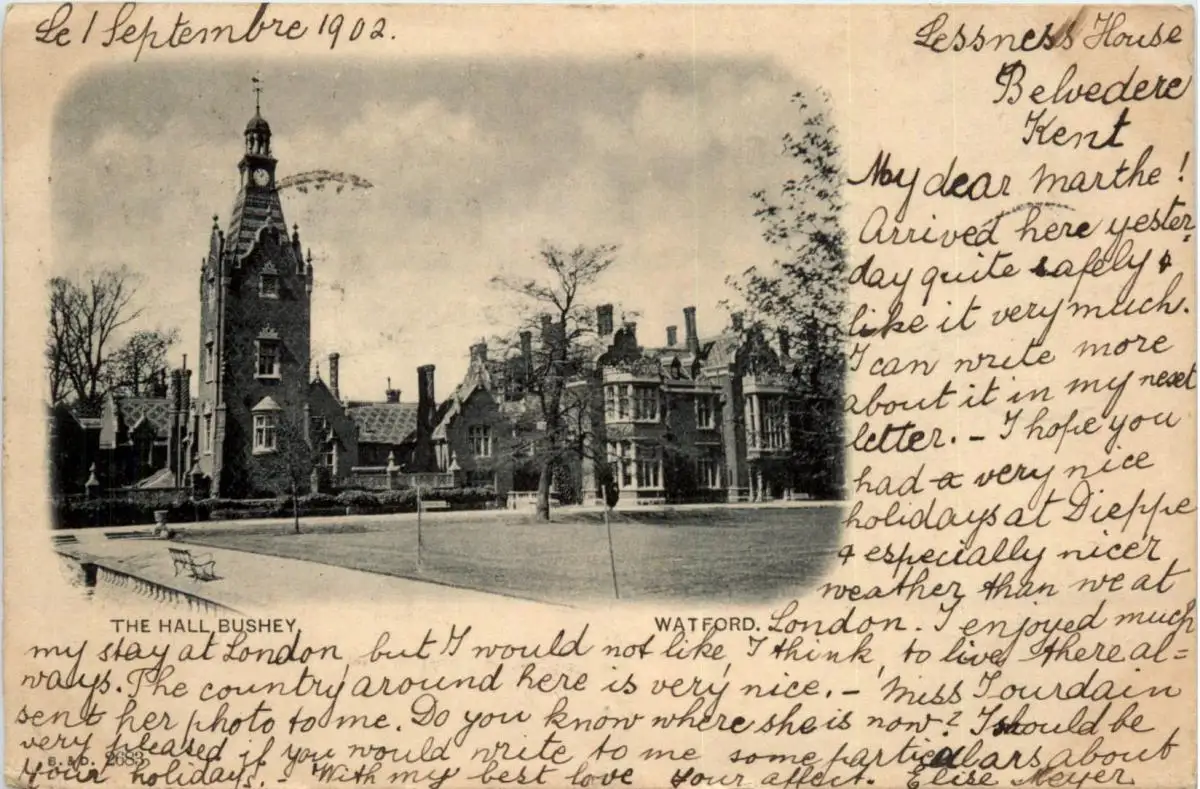 Le 1 Septembre 1902.
Lessness House
Belvedere
Kent
My dear Marthe!
Arrived here yester-
day quite safely &
like it very much.
I can write more
about it in my next
letter. - I hope you
had a very nice
holidays at Dieppe
& especially nicer
weather than we at
THE HALL, BUSHEY, WATFORD.
London. I enjoyed much
my stay at London, but I would not like, I think, to live there al=
ways. The country around here is very nice. - Miss Jourdain
sent her photo to me. Do you know where she is now? I should be
very pleased if you would write to me some particulars about
B. & D. 2683
your holidays. - With my best love your affect. Elise Meyer